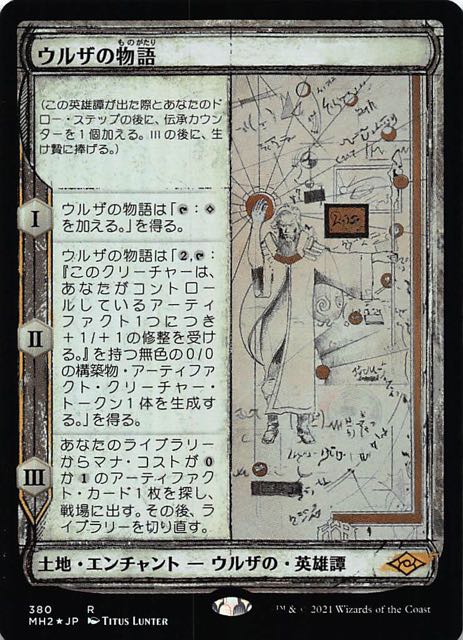 ものがたり
ウルザの物語
(この英雄譚が出た際とあなたのド
ロー・ステップの後に、伝承カウン
ターを1個加える。IIIの後に、生
け贄に捧げる。)
I
ウルザの物語は「:
を加える。」を得る。
II
ウルザの物語は「2,:
『このクリーチャーは、
あなたがコントロ
ールしているアーティ
ファクト1つにつき
+1/+1の修整を受
ける。』を持つ無色の0/0
の構築物・アーティファ
クト・クリーチャー・
トークン1体を生成す
る。」を得る。
III
あなたのライブラリー
からマナ・コストが0
か1のアーティファク
ト・カード1枚を探し、
戦場に出す。その後、ラ
イブラリーを切り直す。
土地・エンチャント — ウルザの・英雄譚
380 R
MH2★JP TITUS LUNTER
™ & © 2021 Wizards of the Coast